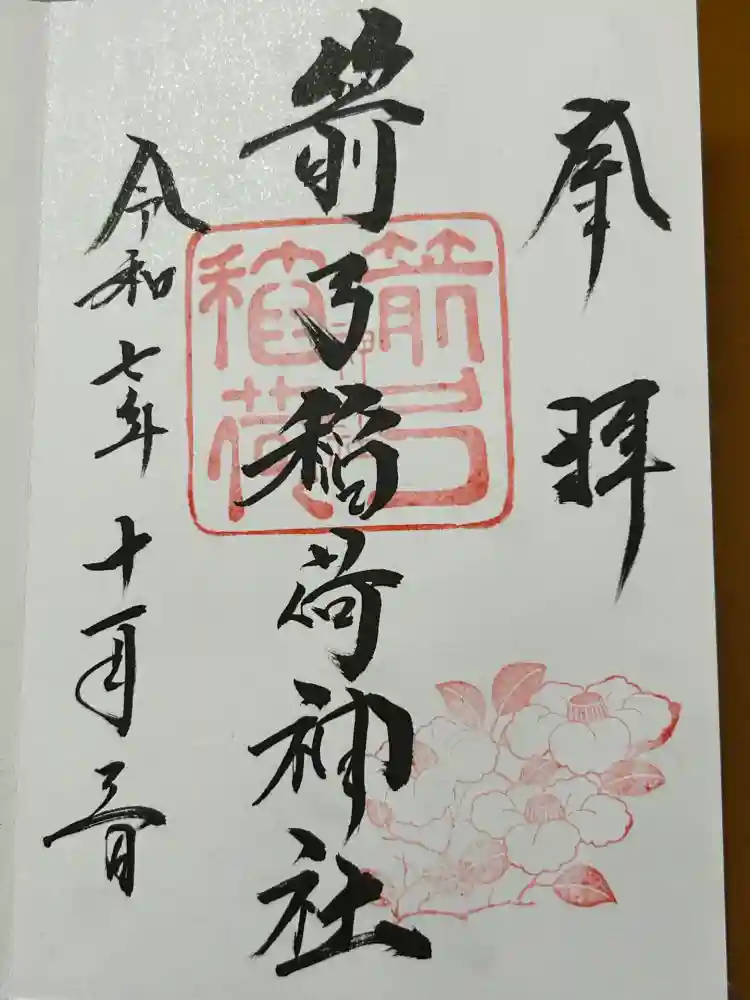 奉拝
箭弓稲荷神社
箭弓
稲荷
令和七年十一月三日